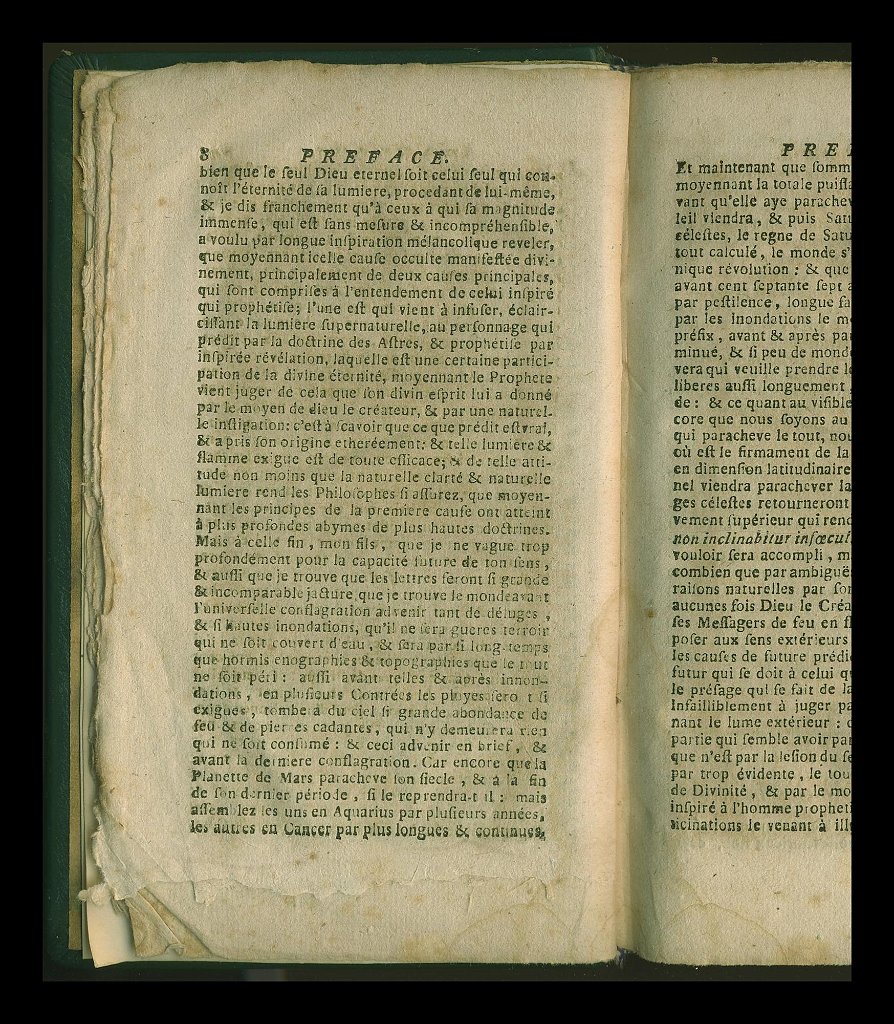 8 PREFACE.
bien que le ſeul Dieu eternel ſoit celui ſeul qui con-
noît l'éternité de ſa lumiere, procedant de lui-même,
& je dis franchement qu'à ceux à qui ſa magnitude
immenſe, qui eſt ſans meſure & incompréhenſible,
a voulu par longue inſpiration mélancolique reveler,
que moyennant icelle cauſe occulte manifeſtée divi-
nement, principalement de deux cauſes principales,
qui ſont compriſes à l'entendement de celui inſpiré
qui prophétiſe; l'une eſt qui vient à infuſer, éclair-
ciſſant la lumiere ſupernaturelle, au perſonnage qui
prédit par la doctrine des Aſtres, & prophétiſe par
inſpirée révélation, laquelle eſt une certaine partici-
pation de la divine éternité, moyennant le Prophete
vient juger de cela que ſon divin eſprit lui a donné
par le moyen de dieu le créateur, & par une naturel-
le inſtigation: c'eſt à ſcavoir que ce que prédit eſt vraſ,
& a pris ſon origine etheréement; & telle lumiere &
flamme exigue eſt de toute efficace; & de telle atti-
tude non moins que la naturelle clarté & naturelle
lumiere rend les Philoſophes ſi aſſurez, que moyen-
nant les principes de la premiere cauſe ont atteint
à plus profondes abymes de plus hautes doctrines.
Mais à celle fin, mon fils, que je ne vague trop
profondément pour la capacité future de ton ſens,
& auſſi que je trouve que les lettres ſeront ſi grande
& incomparable jacture, que je trouve le monde avant
l'univerſelle conflagration advenir tant de déluges,
& ſi hautes inondations, qu'il ne ſera gueres terroir
qui ne ſoit couvert d'eau, & ſera par ſi long-temps
que hormis enographies & topographies que le tout
ne ſoit péri: auſſi avant telles & après innon-
dations, en pluſieurs Contrées les pluyes ſero t ſi
exigues, tombera du ciel ſi grande abondance de
feu & de pier es cadantes, qui n'y demeurera rien
qui ne ſoit conſumé: & ceci advenir en brief, &
avant la derniere conflagration. Car encore que la
Planette de Mars paracheve ſon ſiecle, & à la fin
de ſon dernier période, ſi le reprendra-t il: mais
aſſemblez les uns en Aquarius par pluſieurs années,
les autres en Cancer par plus longues & continues,
PRE
Et maintenant que ſomm
moyennant la totale puiſſa
vant qu'elle aye parachev
leil viendra, & puis Satu
céleſtes, le regne de Satu
tout calculé, le monde s'
nique révolution: & que
avant cent ſeptante ſept a
par peſtilence, longue fa
par les inondations le m
préfix, avant & après pa
minué, & ſi peu de monde
vera qui veuille prendre le
liberes auſſi longuement
de: & ce quant au viſible
core que nous ſoyons au
qui paracheve le tout, nou
où eſt le firmament de la
en dimenſion latitudinaire
nel viendra parachever la
ges céleſtes retourneront
vement ſupérieur qui rend
non inclinabitur inſœcul
vouloir ſera accompli, m
combien que par ambiguë
raiſons naturelles par ſon
aucunes fois Dieu le Créa
ſes Meſſagers de feu en fl
poſer aux ſens extérieurs
les cauſes de future prédi
futur qui ſe doit à celui q
le préſage qui ſe fait de la
Infailliblement à juger pa
nant le lume extérieur:
partie qui ſemble avoir par
que n'eſt par la leſion du ſe
par trop évidente, le tou
de Divinité, & par le mo
inſpiré à l'homme propheti
ticinations le venant à illu